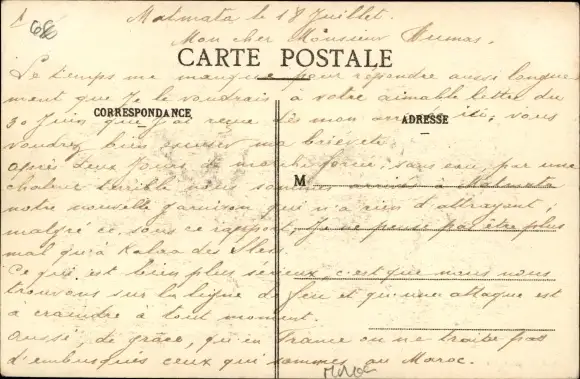 686
Matmata le 18 Juillet.
Mon cher Monsieur Dumas,
CARTE POSTALE
Le temps me manque pour répondre aussi longue
ment que Je le voudrais à votre aimable lettre du
CORRESPONDANCE
ADRESSE
30 Juin que J'ai reçue dès mon arrivée ici, vous
voudrez bien excuser ma brièveté.
après deux Jours de marche forcée, sans eau, par une
chaleur terrible nous sommes arrivés à Matmata
M
notre nouvelle garnison qui n'a rien d'attrayant;
malgré ce, sous ce rapport, Je ne pense pas être plus
mal qu'à Kalaa des Sless.
Ce qui est bien plus sérieux, c'est que nous nous
trouvons sur la ligne de feu et qu'une attaque est
à craindre à tout moment.
aussi, de grâce, qu'en France on ne traite pas
d'embusqués ceux qui sommes au Maroc.
Maroc